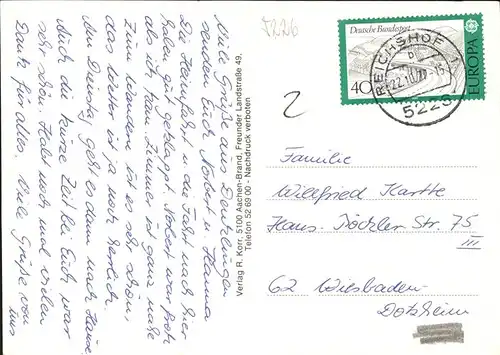 5226
Viele Grüße aus Denklingen
senden Euch Norbert u. Hanna
Die Heimfahrt u. die Fahrt nach hier
haben gut geklappt. Norbert war froh
als ich kam. Zimmer ist ganz nahe
Zum Wandern ist es sehr schön,
das Wetter ist ja noch herrlich.
Am Dienstag geht es dann nach Hause.
Auch die kurze Zeit bei Euch war
sehr schön. Habt noch mal vielen
Dank für alles. Viele Grüße von
uns
Verlag R. Korr, 5100 Aachen-Brand, Freunder Landstraße 49,
Telefon 52 69 00 - Nachdruck verboten
Deutsche Bundespost
40
EUROPA
REICHSHOF 1
5226
2
Familie
Willfried Kartte
Hans-Böckler Str. 75
III
62 Wiesbaden
Dotzheim